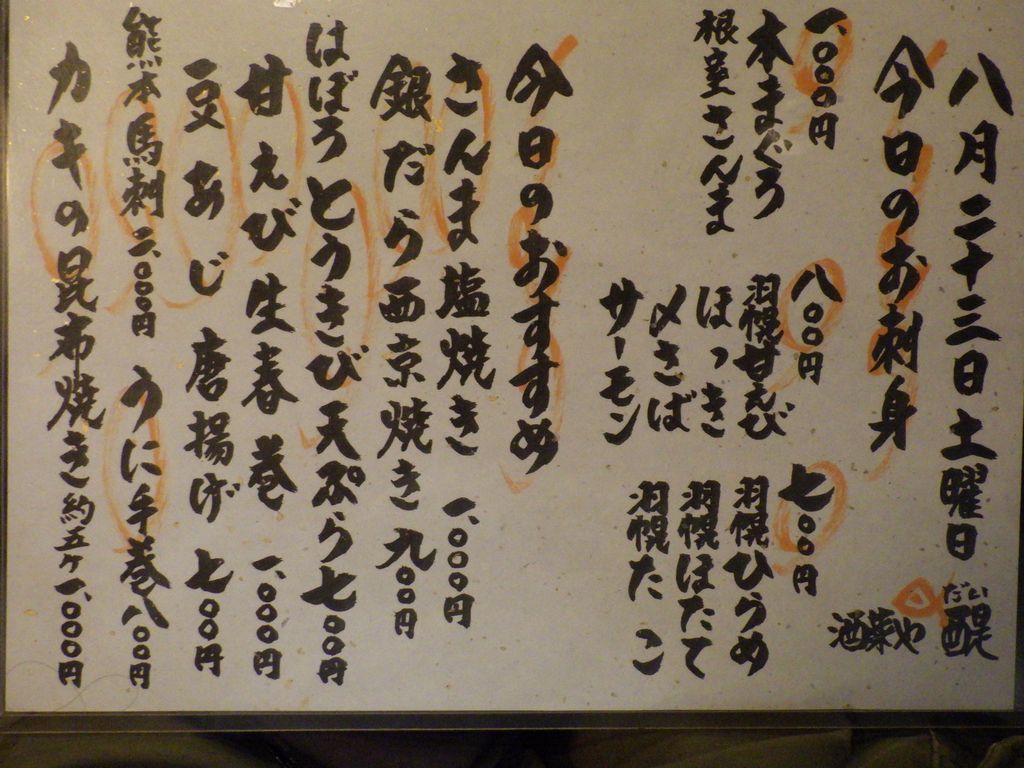 八月二十三日土曜日
だい
醍
酒菜や
今日のお刺身
一、〇〇〇円
本まぐろ
根室さんま
八〇〇円
羽幌甘えび
ほっき
〆さば
サーモン
七〇〇円
羽幌ひらめ
羽幌ほたて
羽幌たこ
今日のおすすめ
さんま塩焼き 一、〇〇〇円
銀だら西京焼き 九〇〇円
はぼろとうきび天ぷら 七〇〇円
甘えび生春巻 一、〇〇〇円
豆あじ唐揚げ 七〇〇円
熊本馬刺 二、〇〇〇円 うに手巻 八〇〇円
カキの昆布焼き 約五ヶ 一、〇〇〇円